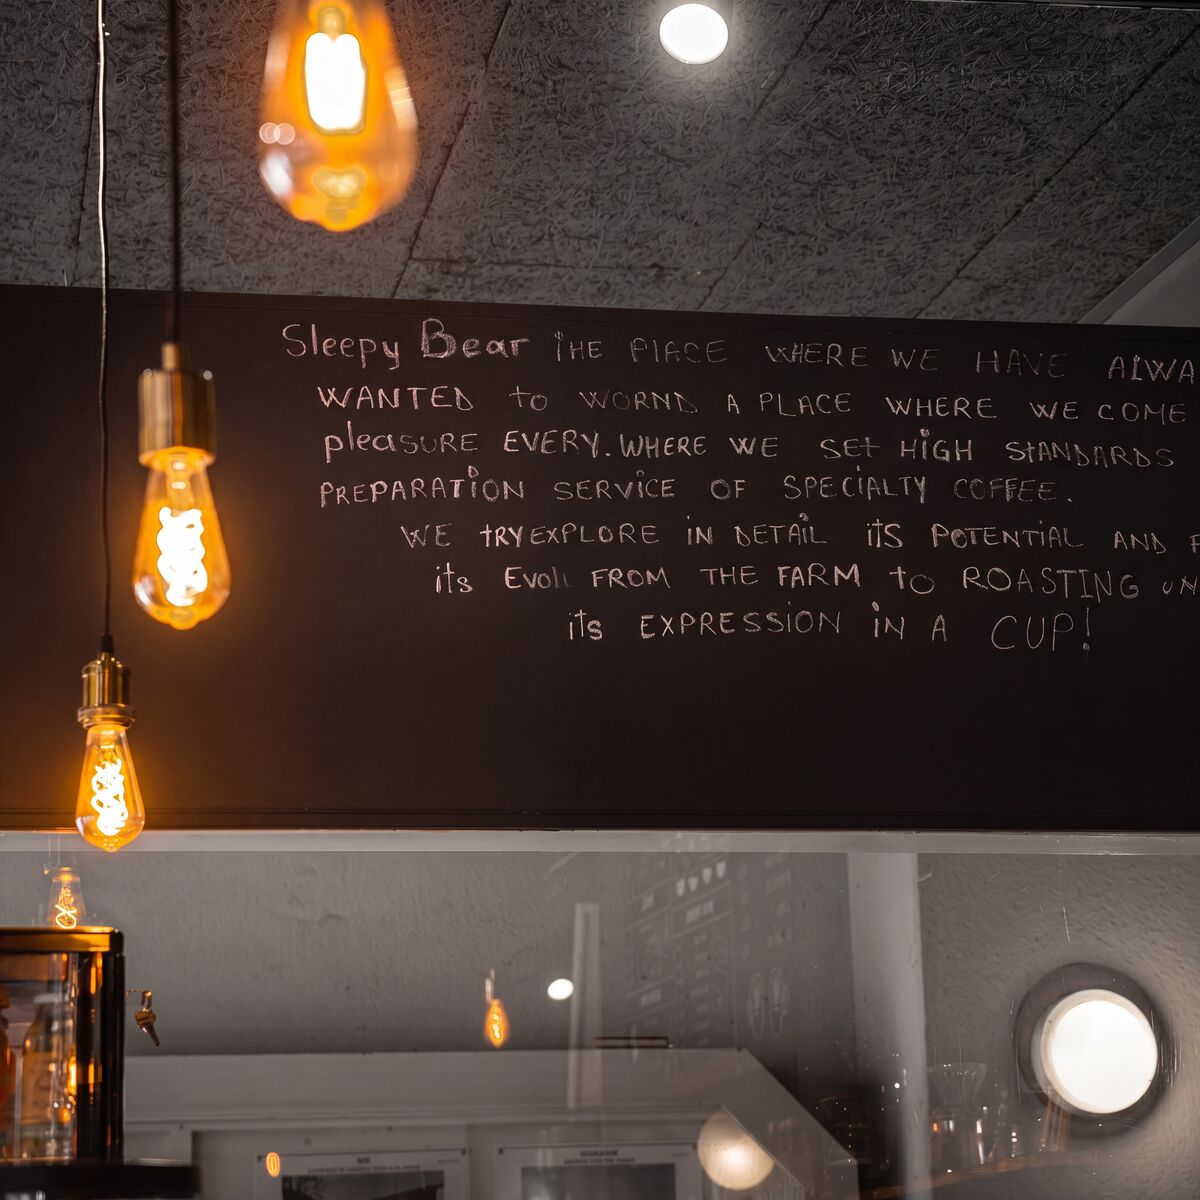 Sleepy Bear THE PlACE WHERE WE HAVE AlWA
WANTED to WORND A PLACE WHERE WE COME
pleasURE EVERY. WHERE WE SEt HiGH StANDARDS
PREPARATiON SERViCE OF SPECiALTY COFFEE.
WE tRY EXPLORE iN DETAiL itS POTENTiAL AND F
its Evol FROM THE FARM to ROASTING UN
its EXPRESSiON iN A CUP!